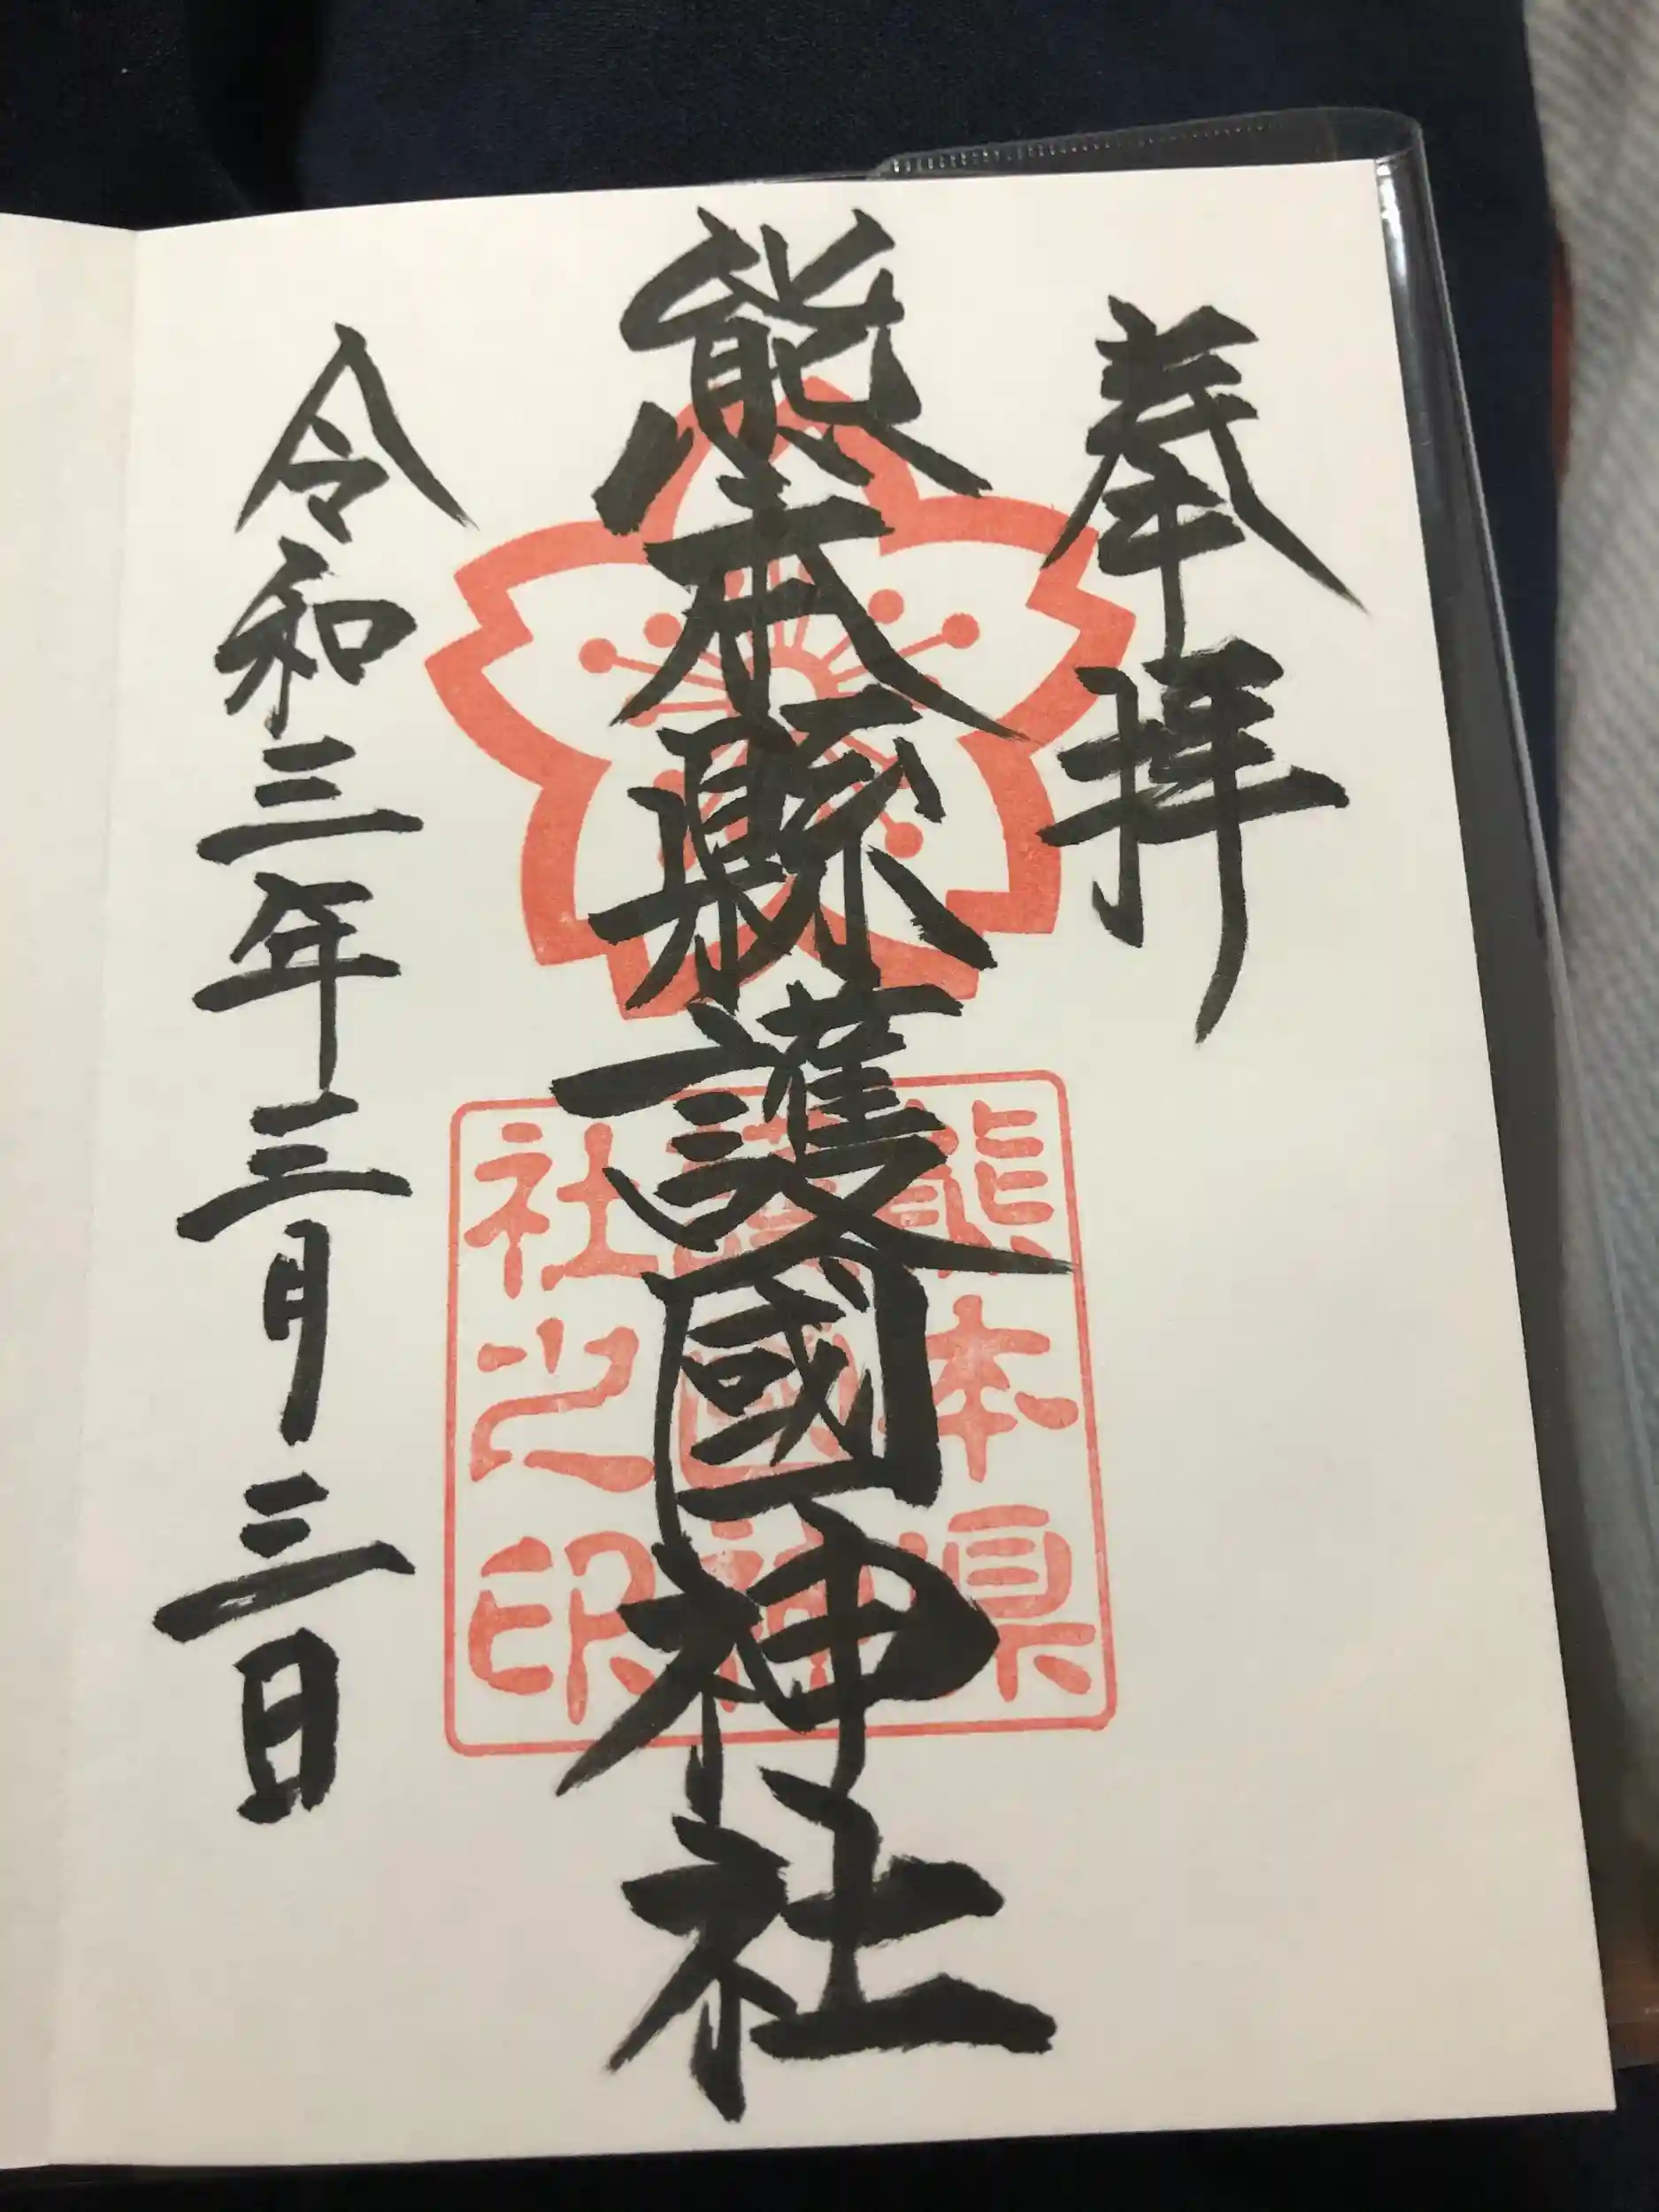 奉拝
熊本縣護國神社
令和三年三月三日
熊本県
護國神
社之印